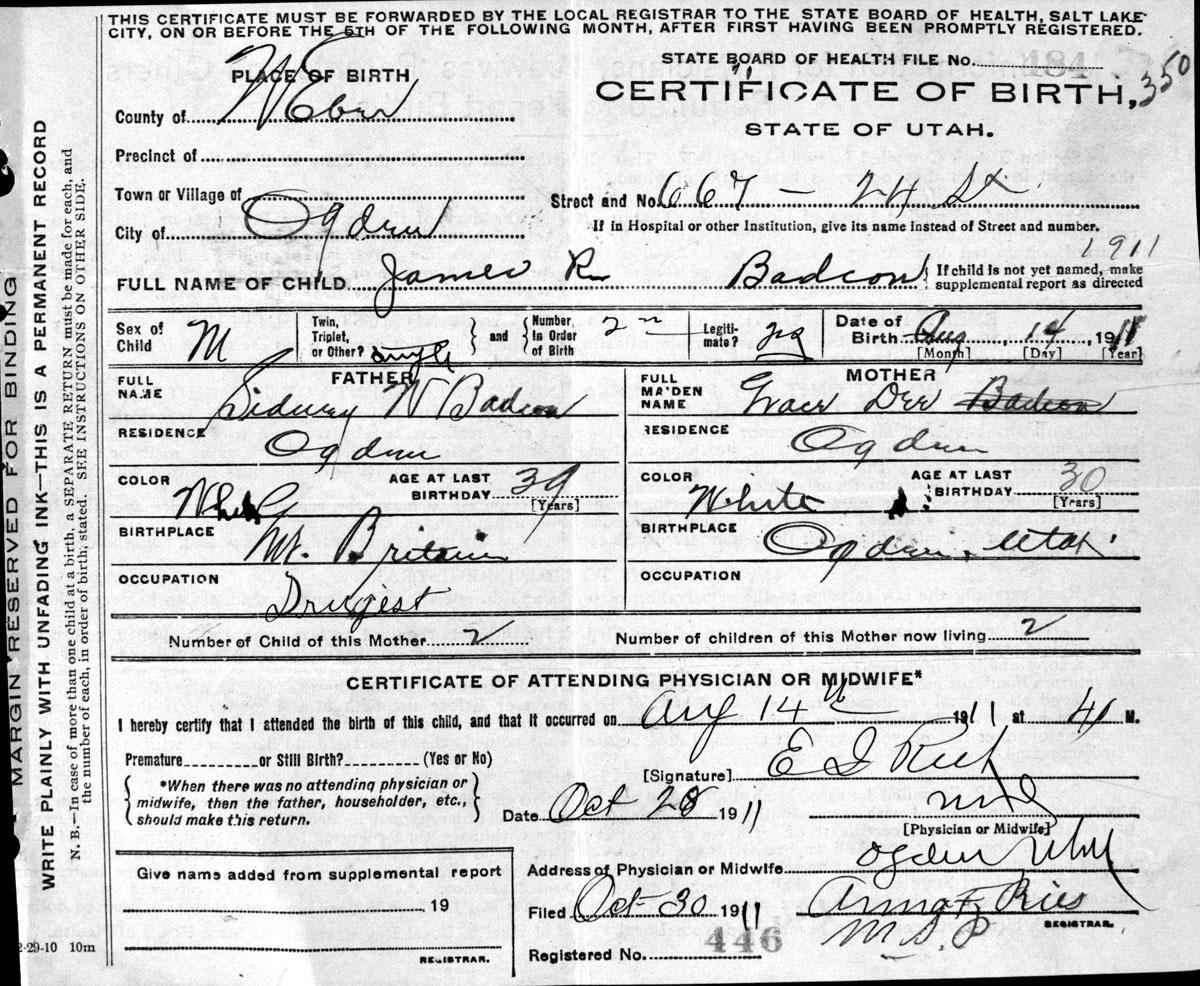 THIS CERTIFICATE MUST BE FORWARDED BY THE LOCAL REGISTRAR TO THE STATE BOARD OF HEALTH, SALT LAKE
CITY, ON OR BEFORE THE 5TH OF THE FOLLOWING MONTH, AFTER FIRST HAVING BEEN PROMPTLY REGISTERED.
PLACE OF BIRTH
STATE BOARD OF HEALTH FILE No. 184
CERTIFICATE OF BIRTH, 350
STATE OF UTAH.
County of Weber
Precinct of
Town or Village of
Street and No. 667 - 24 St
City of Ogden
If in Hospital or other Institution, give its name instead of Street and number.
1911
FULL NAME OF CHILD James R Badcon { If child is not yet named, make
supplemental report as directed
Sex of Child M
Twin, Triplet, or Other? single } and { Number in Order of Birth 2
Legiti-mate?
Date of Birth Aug 14 1911
[Month] [Day] [Year]
FATHER
FULL NAME Sidney W Badcon
RESIDENCE Ogden
COLOR White AGE AT LAST BIRTHDAY 39 [Years]
BIRTHPLACE Britain
OCCUPATION Drugest
MOTHER
FULL MA'DEN NAME Grace Dee Badcon
RESIDENCE Ogden
COLOR White AGE AT LAST BIRTHDAY 30 [Years]
BIRTHPLACE Ogden, Utah
OCCUPATION
Number of Child of this Mother 2 Number of children of this Mother now living 2
CERTIFICATE OF ATTENDING PHYSICIAN OR MIDWIFE*
I hereby certify that I attended the birth of this child, and that it occurred on Aug 14th 1911 at M.
Premature or Still Birth? (Yes or No)
{ *When there was no attending physician or
midwife, then the father, householder, etc.,
should make this return. }
[Signature] E I Rich
Date Oct 28 1911
[Physician or Midwife]
Give name added from supplemental report
19
REGISTRAR.
Address of Physician or Midwife Ogden Utah
Filed Oct 30 1911
REGISTRAR.
Registered No. 446
MARGIN RESERVED FOR BINDING
WRITE PLAINLY WITH UNFADING INK—THIS IS A PERMANENT RECORD
N. B.—In case of more than one child at a birth, a SEPARATE RETURN must be made for each, and
the number of each, in order of birth, stated. SEE INSTRUCTIONS ON OTHER SIDE.
2-29-10 10m